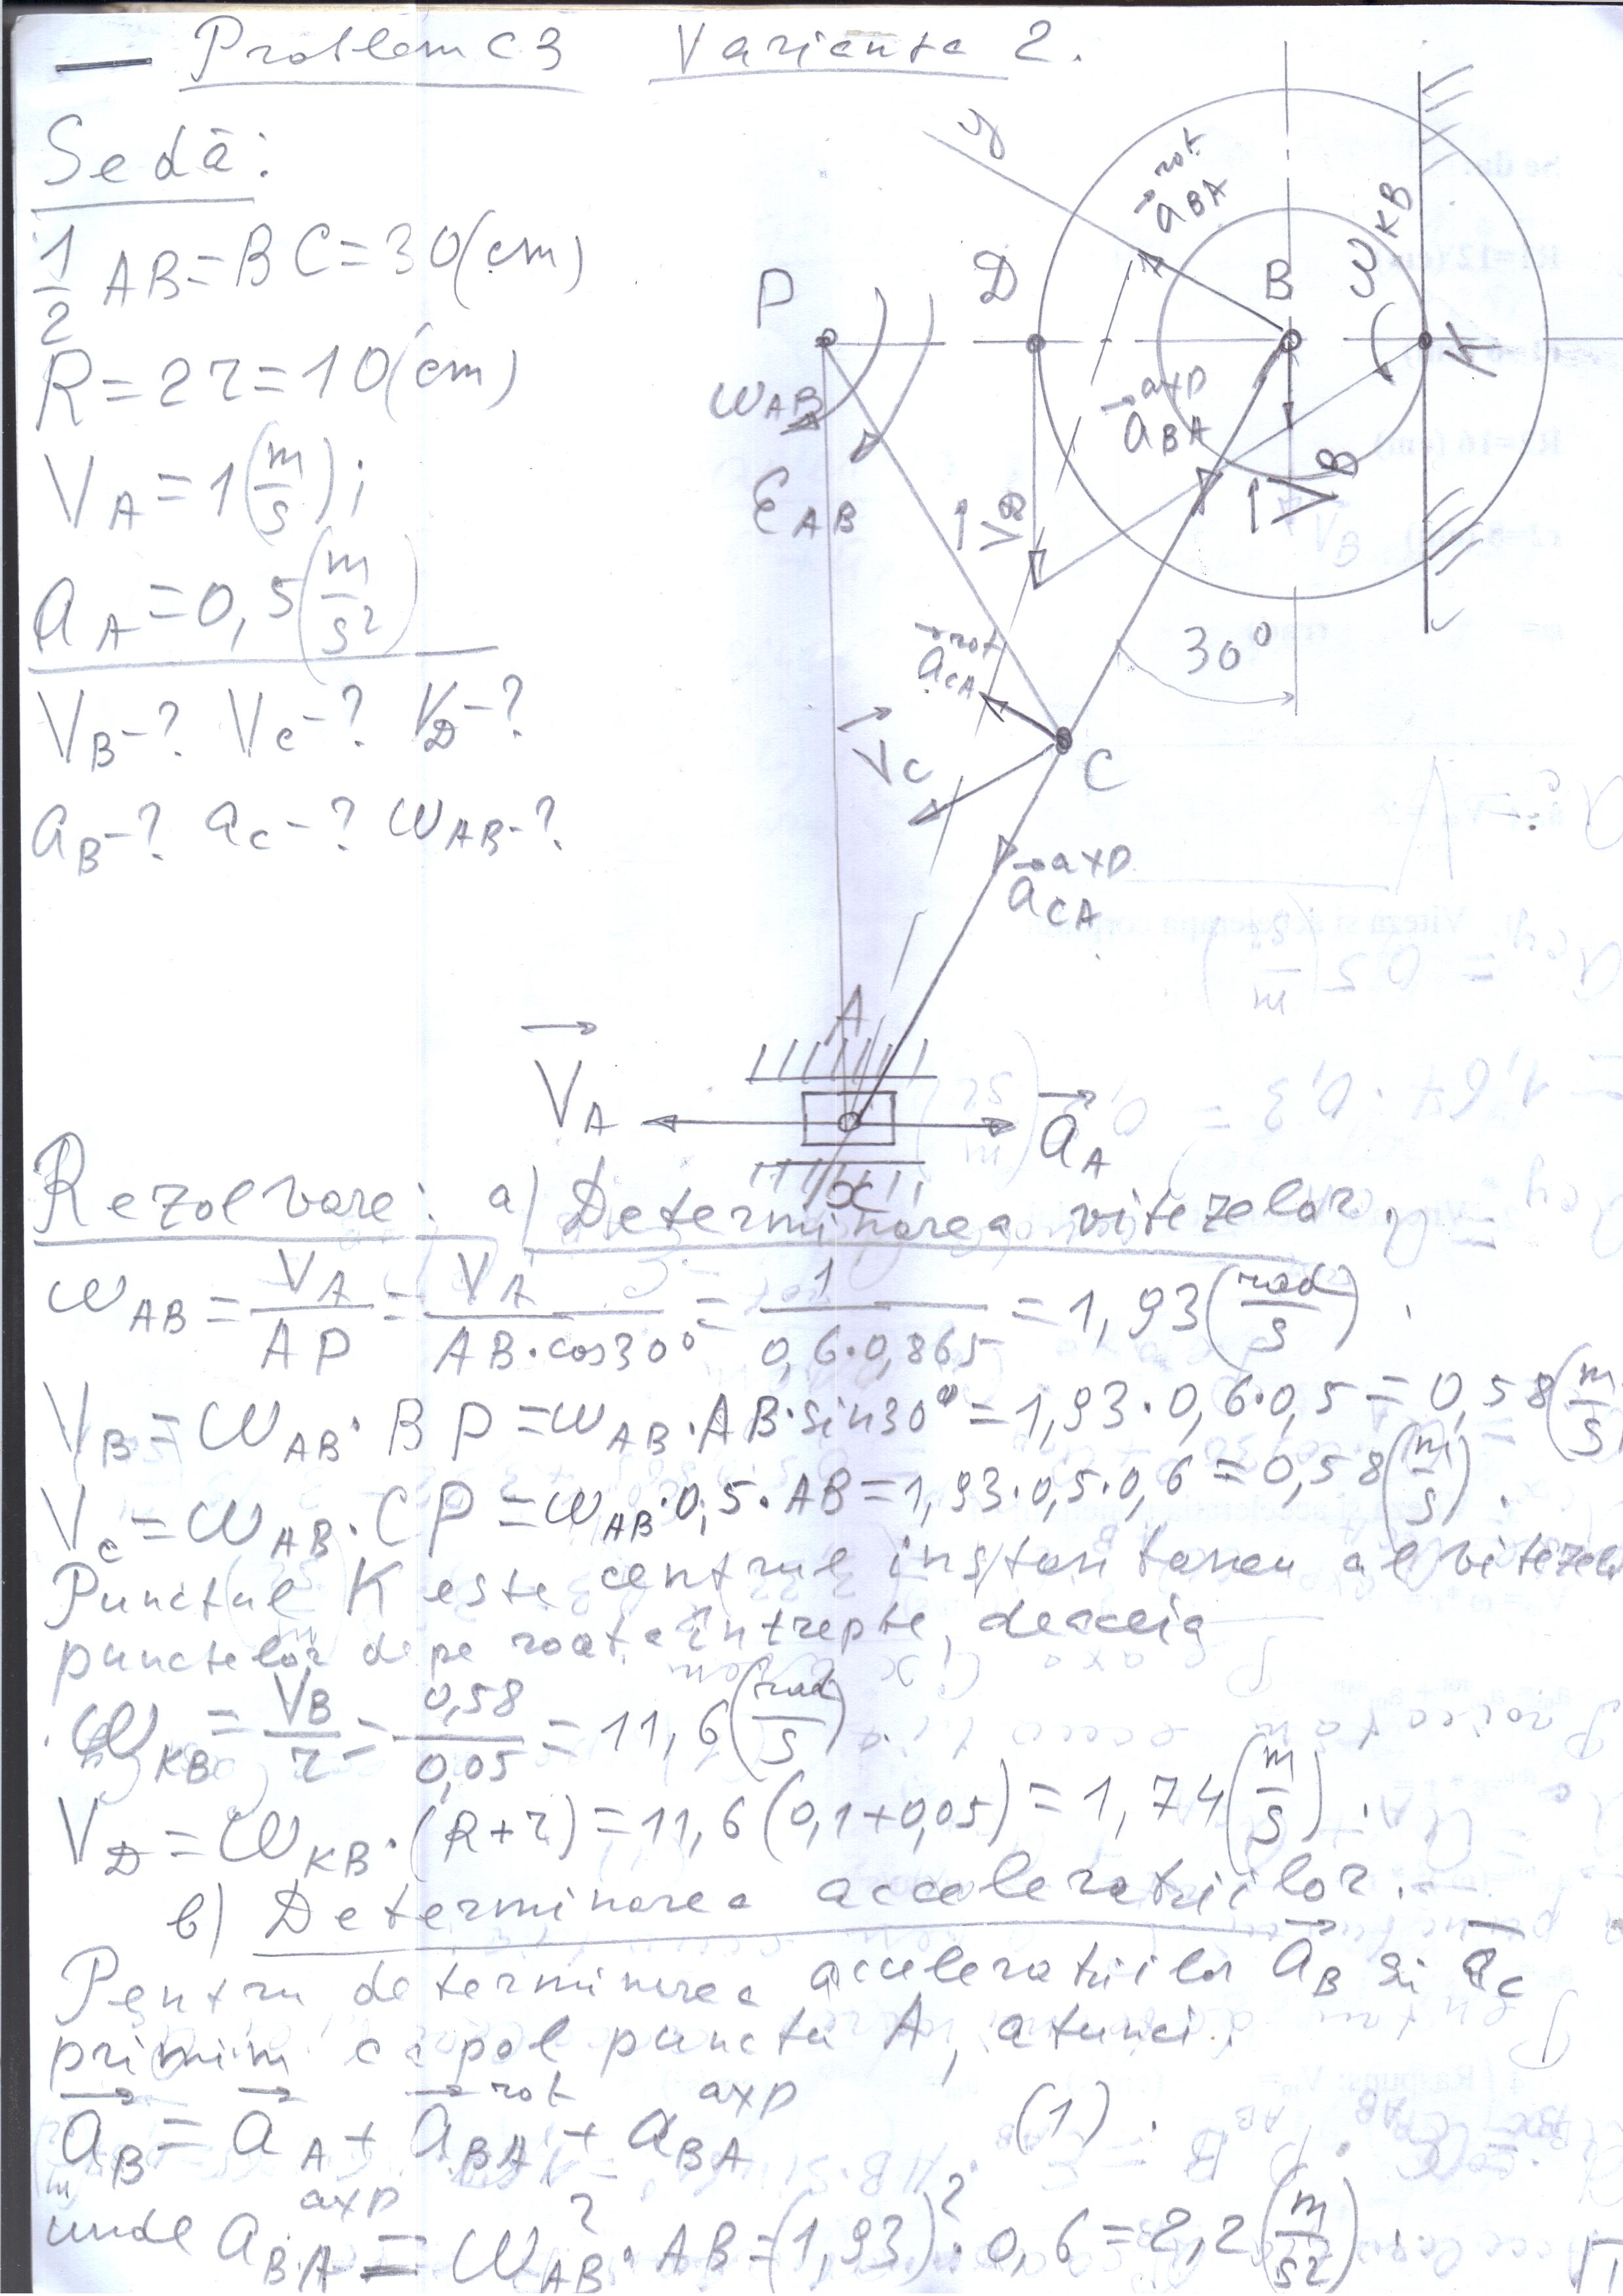 Problema 3 Varianta 2.
Se dă:
1/2 AB=BC=30(cm)
R=2r=10(cm)
VA=1(m/s);
aA=0,5(m/s²)
VB-? VC-? VD-?
aB-? aC-? ωAB-?
y
aBA rot
ωKB
P
D
B
K
ωAB
εAB
aBA axp
VD
VB
30°
aCA rot
VC
C
aCA axp
A
VA
aA
x
Rezolvare: a) Determinarea vitezelor.
ωAB = VA/AP = VA/(AB·cos30°) = 1/(0,6·0,865) = 1,93(rad/s).
VB=ωAB·BP=ωAB·AB·sin30°=1,93·0,6·0,5=0,58(m/s)
VC=ωAB·CP=ωAB·0,5·AB=1,93·0,5·0,6=0,58(m/s).
Punctul K este centrul instantaneu al vitezelor
punctelor de pe roata întrepte, deaceia
ωKB = VB/r = 0,58/0,05 = 11,6(rad/s).
VD=ωKB·(R+r)=11,6(0,1+0,05)=1,74(m/s).
b) Determinarea acceleratiilor.
Pentru determinarea acceleratiilor aB si aC
primim ca pol punctu A, atunci:
aB = aA + aBA rot + aBA axp (1).
unde aBA axp = ωAB²·AB=(1,93)²·0,6=2,2(m/s²).